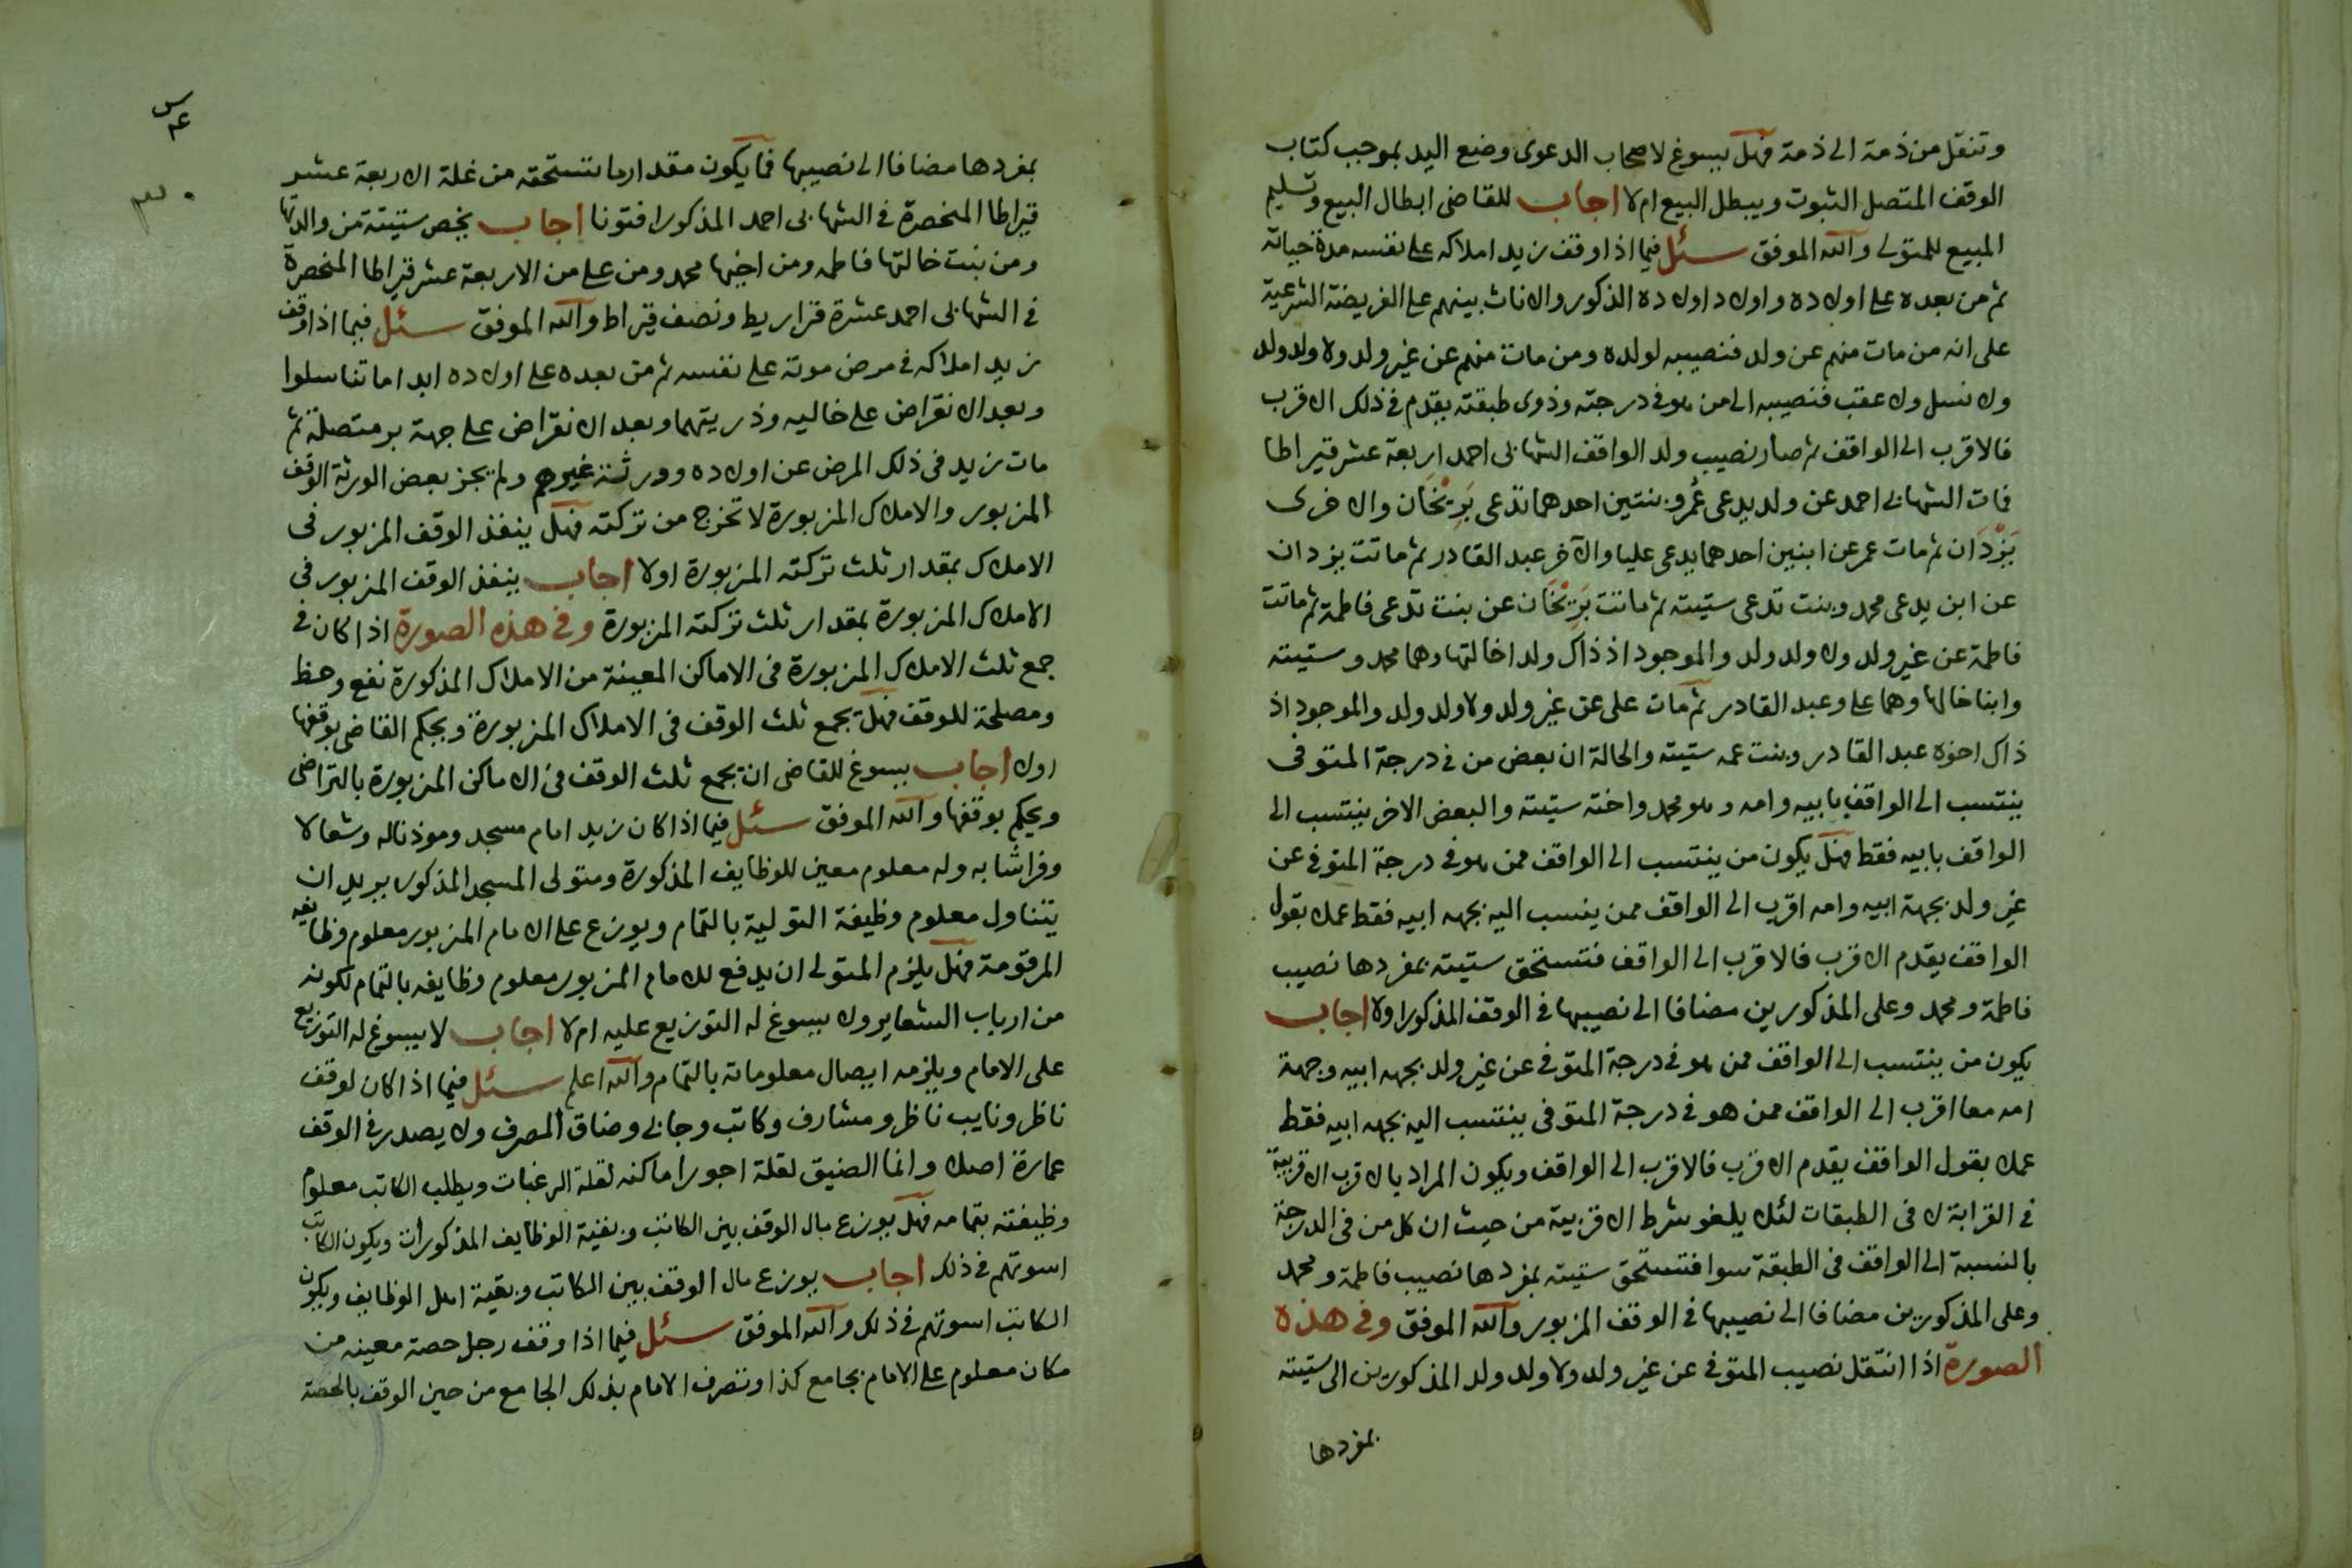 وتنقل من ذمة الى ذمة فهل يسوغ لاصحاب الدعوى وضع اليد بموجب كتاب
الوقف المتصل الثبوت ويبطل البيع ام لا اجاب للقاضى ابطال البيع وتسليم
المبيع للمتولى والله الموفق سئل فيما اذا وقف زيد املاكه على نفسه مدة حياته
ثم من بعده على اولاده واولاد اولاده الذكور والاناث بينهم على الفريضة الشرعية
على انه من مات منهم عن ولد فنصيبه لولده ومن مات منهم عن غير ولد ولا ولد ولد
ولا نسل ولا عقب فنصيبه الى من هو فى درجته وذوى طبقته يقدم فى ذلك الاقرب
فالاقرب الى الواقف ثم صار نصيب ولد الواقف الشهابى احمد اربعة عشر قيراطا
فمات الشهابى احمد عن ولد يدعى عُمر وبنتين احدهما تدعى بَرِيْخَان والاخرى
يَزْدَان ثم مات عمر عن ابنين احدهما يدعى عليا والآخر عبد القادر ثم ماتت يزدان
عن ابن يدعى محمد وبنت تدعى ستيته ثم ماتت بَرِيْخَان عن بنت تدعى فاطمة ثم ماتت
فاطمة عن غير ولد ولا ولد ولد والموجود اذ ذاك ولدا خالتها وهما محمد وستيته
وابنا خالها وهما على وعبد القادر ثم مات على عن غير ولد ولا ولد ولد والموجود اذ
ذاك اخوه عبد القادر وبنت عمه ستيته والحالة ان بعض من فى درجة المتوفى
ينتسب الى الواقف بابيه وامه وهو محمد واخته ستيته والبعض الاخر ينتسب الى
الواقف بابيه فقط فهل يكون من ينتسب الى الواقف ممن هو فى درجة المتوفى عن
غير ولد بجهة ابيه وامه اقرب الى الواقف ممن ينسب اليه بجهه ابيه فقط عملا بقول
الواقف يقدم الاقرب فالاقرب الى الواقف فتستحق ستيته بمفردها نصيب
فاطمة ومحمد وعلى المذكورين مضافا الى نصيبها فى الوقف المذكور اولا اجاب
يكون من ينتسب الى الواقف ممن هو فى درجة المتوفى عن غير ولد بجهه ابيه وجهة
امه معا اقرب الى الواقف ممن هو فى درجة المتوفى ينتسب اليه بجهه ابيه فقط
عملا بقول الواقف يقدم الاقرب فالاقرب الى الواقف ويكون المراد بالاقرب الاقربية
فى القرابة لا فى الطبقات لئلا يلغو شرط الاقربية من حيث ان كل من فى الدرجة
بالنسبة الى الواقف فى الطبقة سوا فتستحق ستيته بمفردها نصيب فاطمة ومحمد
وعلى المذكورين مضافا الى نصيبها فى الوقف المزبور والله الموفق وفى هذه
الصورة اذا انتقل نصيب المتوفى عن غير ولد ولا ولد ولد المذكورين الى ستيته
بمفردها
بمفردها مضافا الى نصيبها فما يكون مقدار ما تستحقه من غلة الاربعة عشر
قيراطا المنحصرة فى الشهابى احمد المذكور افتونا اجاب يخص ستيتة من والدتها
ومن بنت خالتها فاطمه ومن اخيها محمد ومن على من الاربعة عشر قيراطا المنحصرة
فى الشهابى احمد عشرة قراريط ونصف قيراط والله الموفق سئل فيما اذا وقف
زيد املاكه فى مرض موته على نفسه ثم من بعده على اولاده ابدا ما تناسلوا
وبعد الانقراض على خاليه وذريتهما وبعد الانقراض على جهة بر متصلة ثم
مات زيد فى ذلك المرض عن اولاده وورثة غيرهم ولم يجز بعض الورثة الوقف
المزبور والاملاك المزبورة لا تخرج من تركته فهل ينفذ الوقف المزبور فى
الاملاك بمقدار ثلث تركته المزبورة اولا اجاب ينفذ الوقف المزبور فى
الاملاك المزبورة بمقدار ثلث تركته المزبورة وفى هذه الصورة اذا كان فى
جمع ثلث الاملاك المزبورة فى الاماكن المعينة من الاملاك المذكورة نفع وحظ
ومصلحة للوقف فهل يجمع ثلث الوقف فى الاملاك المزبورة ويحكم القاضى بوقفها
اولا اجاب يسوغ للقاضى ان يجمع ثلث الوقف فى الاماكن المزبورة بالتراضى
ويحكم بوقفها والله الموفق سئل فيما اذا كان زيد امام مسجد وموذنا له وشعالا
وفراشا به وله معلوم معين للوظايف المذكورة ومتولى المسجد المذكور يريد ان
يتناول معلوم وظيفة التولية بالتمام ويوزع على الامام المزبور معلوم وظايفه
المرقومة فهل يلزم المتولى ان يدفع للامام المزبور معلوم وظايفه بالتمام لكونه
من ارباب الشعاير ولا يسوغ له التوزيع عليه ام لا اجاب لا يسوغ له التوزيع
على الامام ويلزمه ايصال معلوماته بالتمام والله اعلم سئل فيما اذا كان لوقف
ناظر ونايب ناظر ومشارف وكاتب وجابى وضاق المصرف ولا يصدر فى الوقف
عمارة اصلا وانما الضيق لقلة اجور اماكنه لقلة الرغبات ويطلب الكاتب معلوم
وظيفته بتمامه فهل يوزع مال الوقف بين الكاتب وبقية الوظايف المذكورات ويكون الكاتب
اسوتهم فى ذلك اجاب يوزع مال الوقف بين الكاتب وبقية اهل الوظايف ويكون
الكاتب اسوتهم فى ذلك والله الموفق سئل فيما اذا وقف رجل حصة معينه من
مكان معلوم على الامام بجامع كذا وتصرف الامام بذلك الجامع من حين الوقف بالحصة